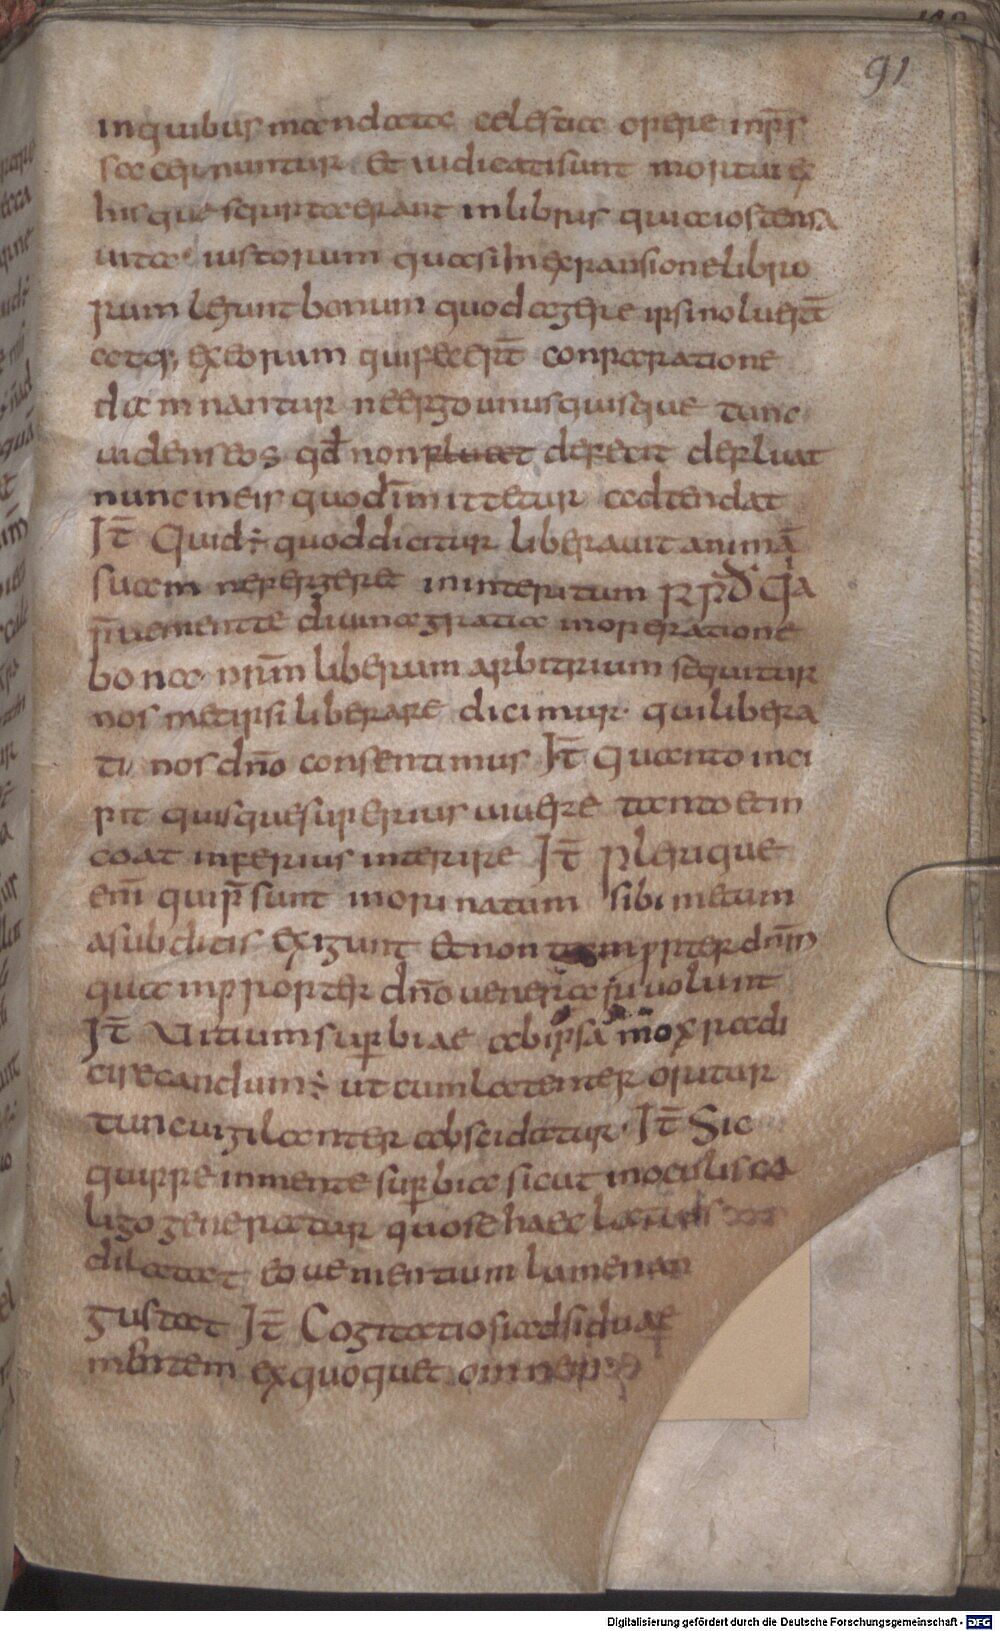 91
inquibus mandata celestia opere inprs
sa cernuntur Et iudicatisunt mortui ex
hisque scriptaerant inlibris quiaiostensa
uita iustorum quasi Inexpansionelibro
rum legunt bonum quodagere ipsinoluert̄
atq; exeorum quifecert̄ conparatione
damnantur neergounusquisque tunc
uidenseos qd̄ non defecit defleat
nunc ineis quodīmittetur adtendat
It̄ Quid÷ quoddicitur liberauit animā
suam nepergeret ininteritum R Pd̄ Qia
p̄uenientte diuinagratia inoperatione
bona nrm̄ liberum arbitrium sequitur
nos metipsi liberare dicimur· quilibera
ti nos dn̄o consentimus It̄ Quanto inci
pit quisquesuperius uiuere tantoetin
coat inferius interire It̄ Plerique
em̄ quip̄sunt inordinatum sibi metum
asubditis exigunt Etnon tam ppter dnm̄
quam propter dn̄o uenerari uolunt
It̄ Uitium superbiae abipsa mox radi
cisecandum÷ ut cumlatenter oritur
tuncuigilanter abscidatur· It̄ Sic
quippe inmente supbia sicut inoculis ca
ligo generatur quose haec latius
dilatat eo uementium lumenan
gustat It̄ Cogitatio siadsiduae
mentem exquoquet omnepus
Digitalisierung gefördert durch die Deutsche Forschungsgemeinschaft - DFG